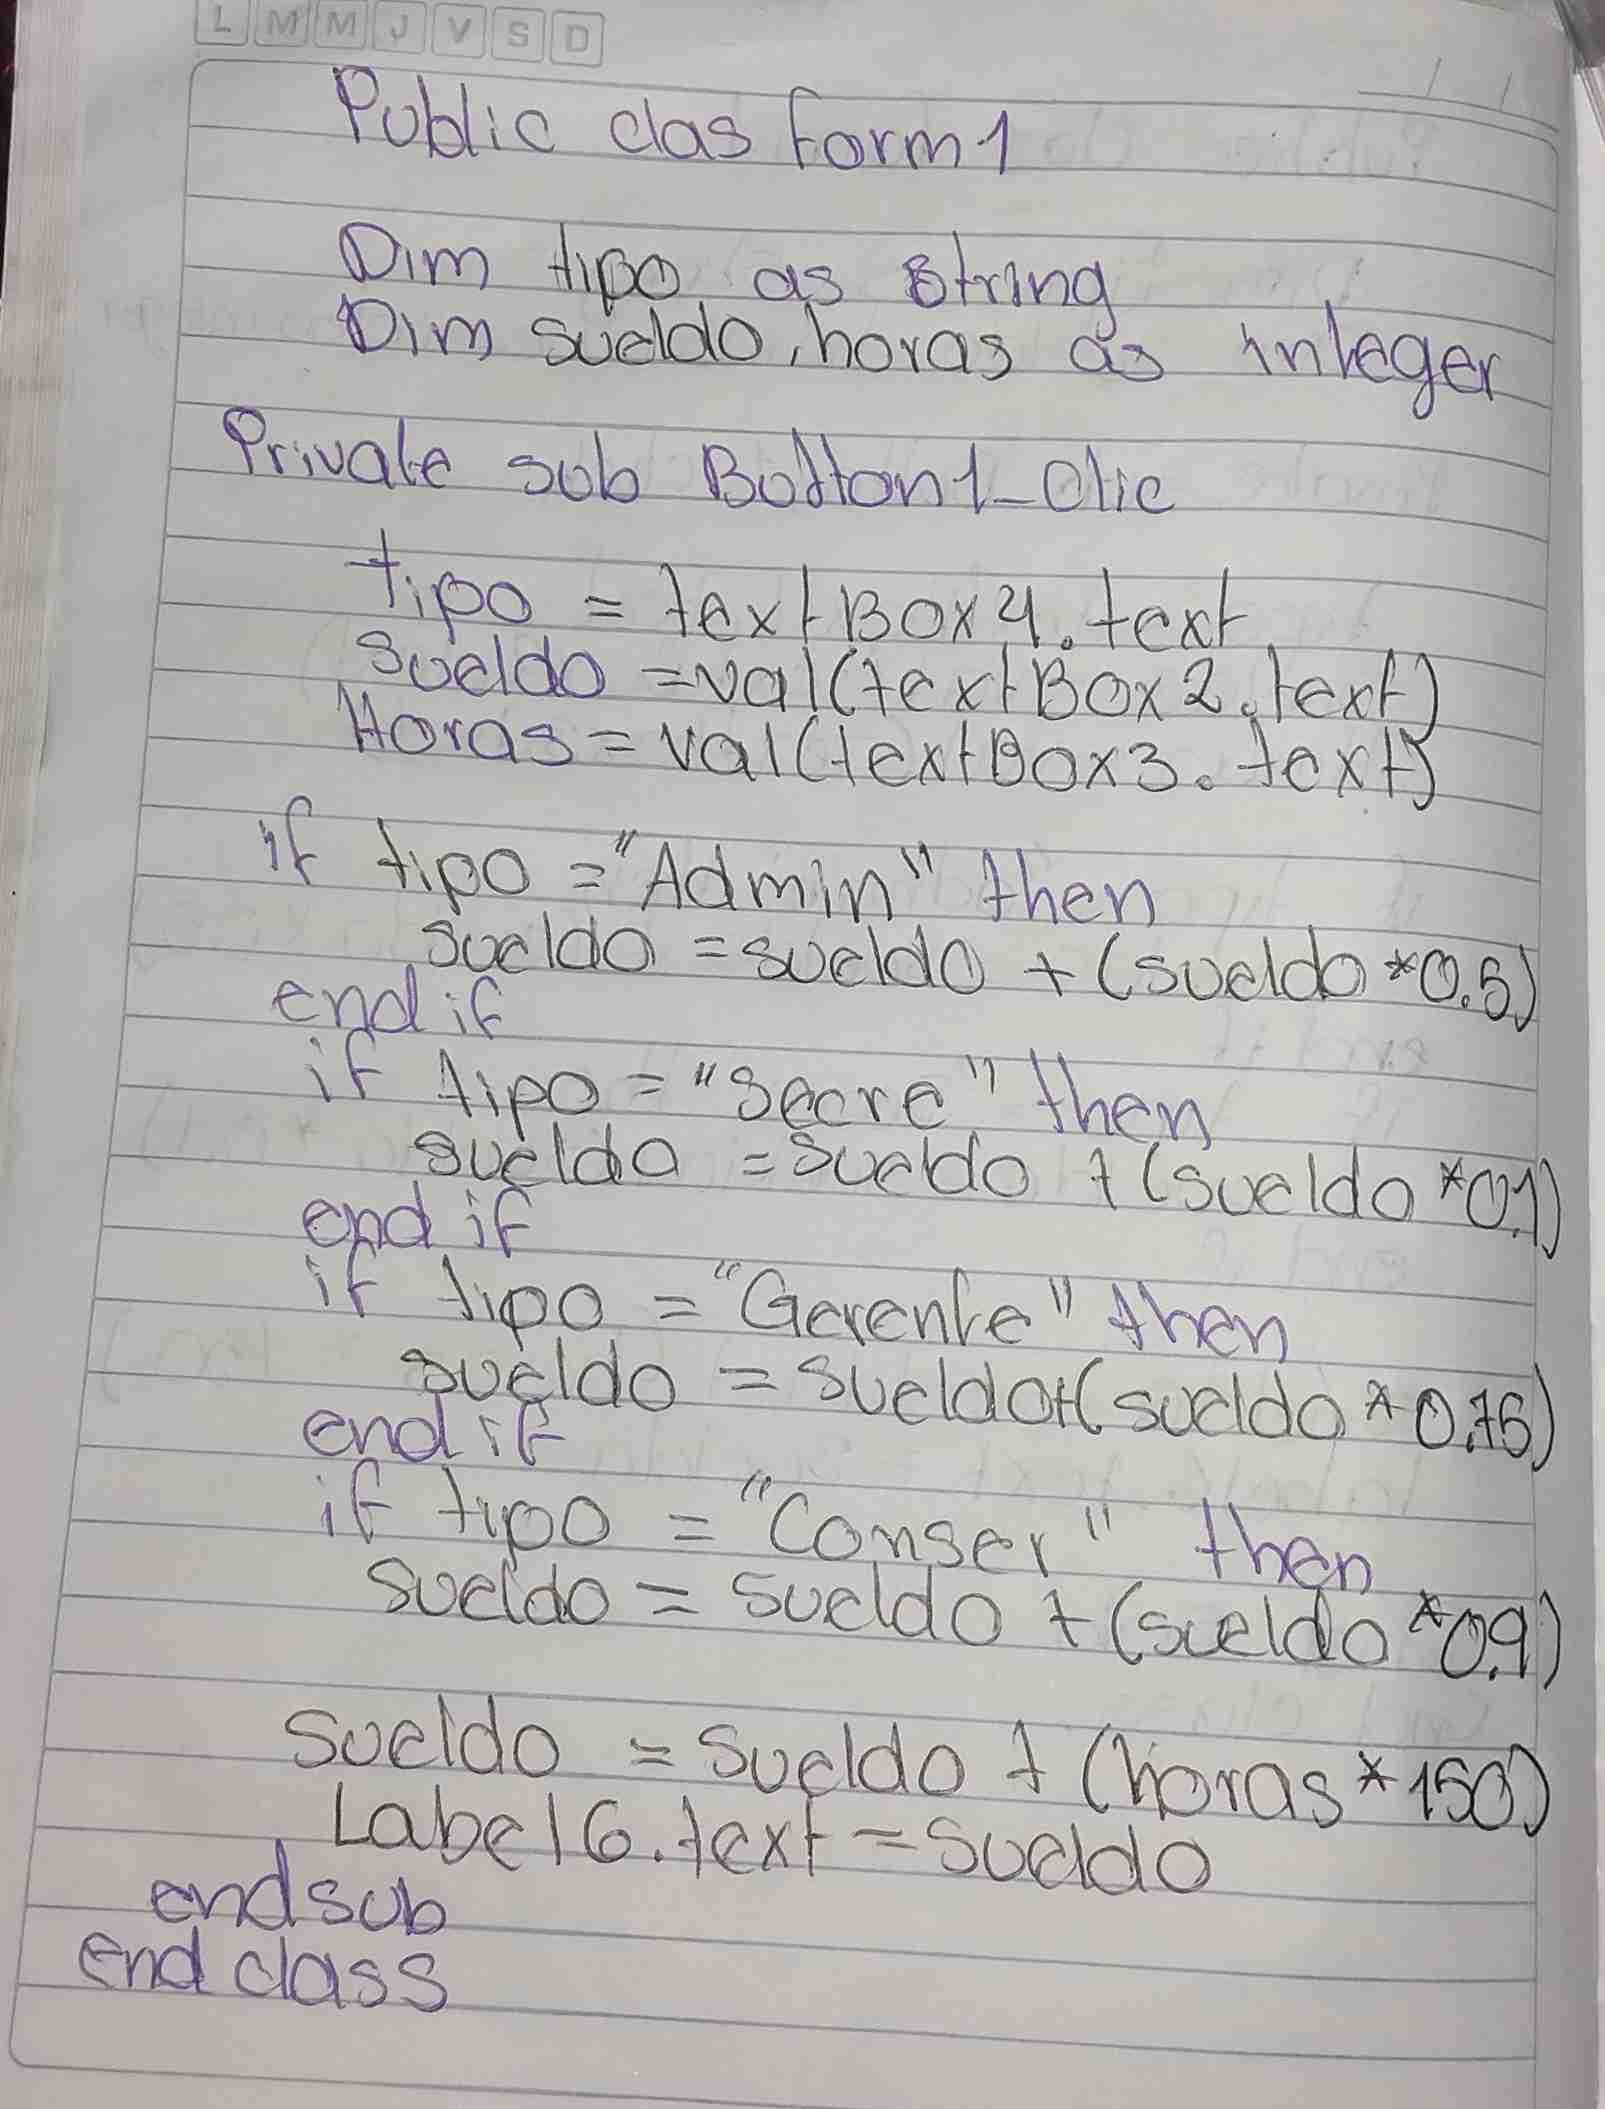 L M M J V S D
Public clas form1
Dim tipo as string
Dim sueldo, horas as integer
Private sub Button1_Clic
tipo = textBox4.text
sueldo =val(textBox2.text)
Horas = val(textBox3.text)
if tipo ="Admin" then
sueldo =sueldo + (sueldo *0.5)
end if
if tipo = "Secre" then
sueldo =sueldo + (sueldo *0.1)
end if
if tipo = "Gerente" then
sueldo = sueldo+(sueldo * 0.75)
end if
if tipo = "Conser" then
sueldo = sueldo + (sueldo *0.9)
sueldo = sueldo + (horas * 150)
Label6.text =sueldo
end sub
end class